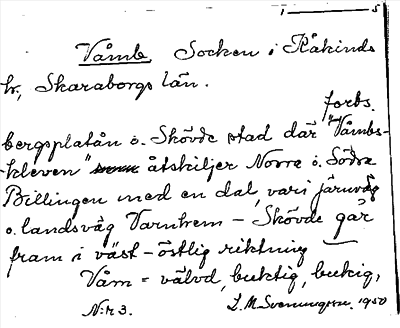 1 — 5
Våmb Socken i Kåkinds
hr, Skaraborgs län.
forts.
bergsplatån o. Skövde stad där "Våmbs-
kleven" åtskiljer Norra o. Södra
Billingen med en dal, vari järnväg
o. landsväg Varnhem – Skövde går
fram i väst – östlig riktning —
Våm = välvd, buktig, bukig,
N:r 3. L. M. Svenungsson. 1950